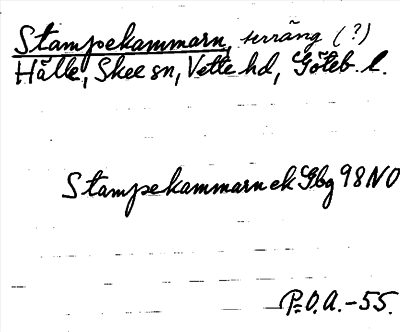 Stampekammarn, urräng (?)
Hålle, Skee sn, Vette hd, Göteb. l.
Stampekammarn ek Gbg 98 NO
P.O.A. -55.